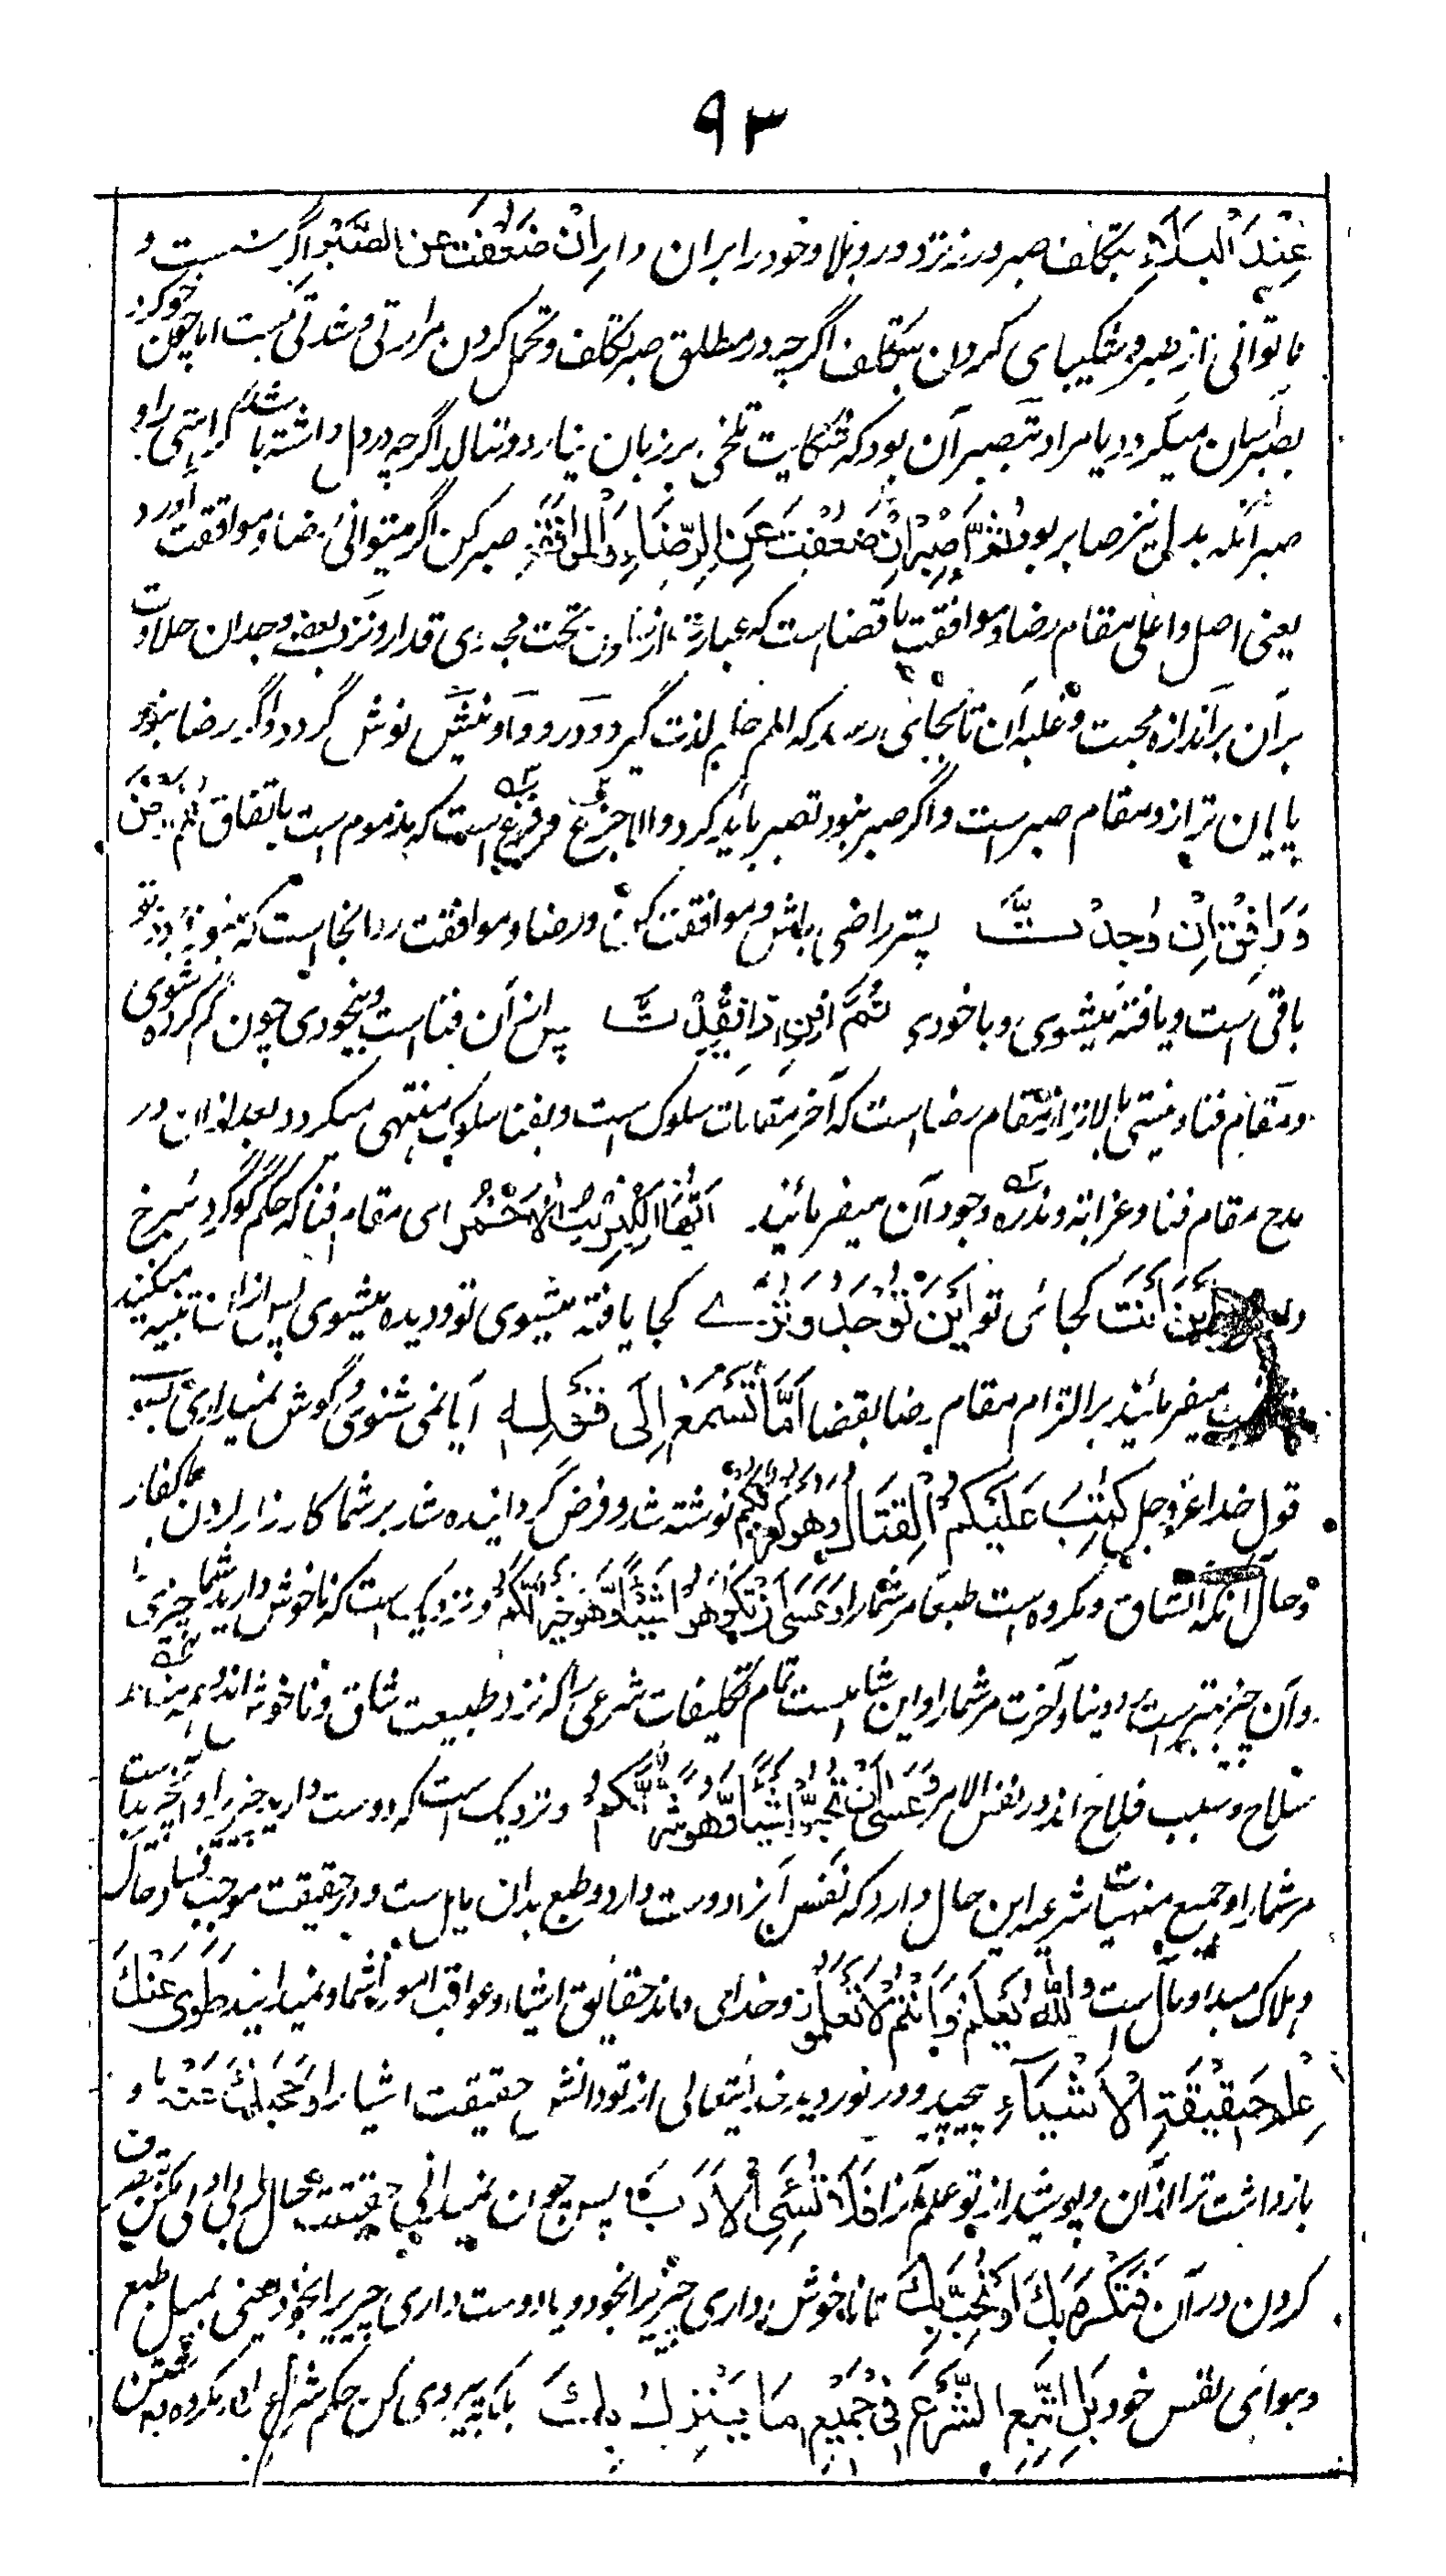 ۹۳
عِنْدَ الْبَلَاءِ بتکلف صبر ورزند نزد ورود بلا و خود را بران دارند اِنْ ضَعُفْتَ عَنِ الصَّبْرِ اگر سست و
ناتوانی از صبر و شکیبای کردن بتکلف اگرچه در مطلق صبر تکلف و تحمل کردن مرارتی و شدتی هست اما چون خوکرد
بصبر آسان میگردد یا مراد بتصبر آن بود که شکایت تلخی بر زبان نیارد و ننالد اگرچه در دل داشته باشد کراهتی را و
صبر آنکه بدل نیز صابر بود ثُمَّ اصْبِرْ اِنْ ضَعُفْتَ عَنِ الرِّضَاءِ وَالْمُوَافَقَةِ صبر کن اگر نمیتوانی رضا و موافقت آورد
یعنی اصل و اعلی مقام رضا و موافقت با قضا است که عبارت از نهادن تحت مجری قدر و نزد بعضی وجدان حلاوت
بر آن بر اندازه محبت و غلبه آن تا بجائی رسد که الم حکم لذت گیرد و درد دوا و نیش نوش گردد و اگر رضا نبود
پایان تر ازو مقام صبر است و اگر صبر نبود تصبر باید کرد و الا جزع و فزع است که مذموم است باتفاق ثُمَّ ارْضَ
وَ وَافِقْ اِنْ وُجِدْتَ پستر راضی باش و موافقت کن و رضا و موافقت در انجا است که هنوز وجود تو
باقی است و یافته میشوی و با خودی ثُمَّ افْنِ اِذَا فُقِدْتَ پس از آن فنا است و بیخودی چون گم کرده شوی
و مقام فنا و نیستی بالاتر از مقام رضا است که آخر مقامات سلوک است و بفنا سلوک منتهی میگردد بعد از ان در
مدح مقام فنا و عزابة و ندره وجود آن میفرمائید اَیُّهَا الْکِبْرِیْتُ الْاَحْمَرُ ای مقام فنا که حکم گوگرد سرخ
اَیْنَ اَنْتَ کجائی تو اَیْنَ تُوْجَدُ وَ تُرٰے کجا یافته میشوی تو و دیده میشوی پس از ان تنبیه میکنید
میفرمائید بر التزام مقام رضا بقضا اَمَّا تَسْمَعْ اِلٰی قَوْلِهٖ آیا نمی شنوی و گوش نمیداری بسوی
قول خدا عز و جل کُتِبَ عَلَیْکُمُ الْقِتَالُ وَهُوَ کُرْهٌ لَّکُمْ نوشته شد و فرض گردانیده شد بر شما کارزار کردن با کفار
و حال آنکه آن شاق و مکروه است طبعا مر شما را وَ عَسٰی اَنْ تَکْرَهُوْا شَیْئًا وَّهُوَ خَیْرٌ لَّکُمْ و نزدیک است که ناخوش دارید شما چیزی را
و آن چیز بهتر است در دنیا و آخرت مر شما را و این شامل است تمام تکلیفات شرعی را که نزد طبیعت شاق و ناخوش اند
صلاح و سبب فلاح اند در نفس الامر وَ عَسٰی اَنْ تُحِبُّوْا شَیْئًا وَّهُوَ شَرٌّ لَّکُمْ و نزدیک است که دوست دارید چیزی را و آن چیز بد است
مر شما را و جمیع منهیات شرعیه این حال دارد که نفس آنرا دوست دارد و طبع بدان مایل است و در حقیقت موجب فساد حال
و هلاک مبدا و مآل است وَاللّٰهُ یَعْلَمُ وَ اَنْتُمْ لَا تَعْلَمُوْنَ و خدای داند حقایق اشیا و عواقب امور را و شما نمیدانید طَوٰی عَنْکَ
عِلْمَ حَقِیْقَةِ الْاَشْیَآءِ پیچید و در نوردید خدایتعالی از تو دانش حقیقت اشیا را وَ حَجَبَکَ عَنْهَا و
بازداشت ترا از آن و پوشید از تو علم آنرا فَلَا تُسِئِ الْاَدَبَ پس چون نمیدانی حقیقت حال بی ادبی مکن بتصرف
کردن در آن فَتَکْرَهَ بِکَ اَوْ تُحِبَّ بِکَ تا ناخوش داری چیزی را بخود و یا دوست داری چیزی را بخود یعنی بمیل طبع
و هوای نفس خود بَلِ اتَّبِعِ الشَّرْعَ فِیْ جَمِیْعِ مَا یَنْزِلُ بِکَ بلکه پیروی کن حکم شرع